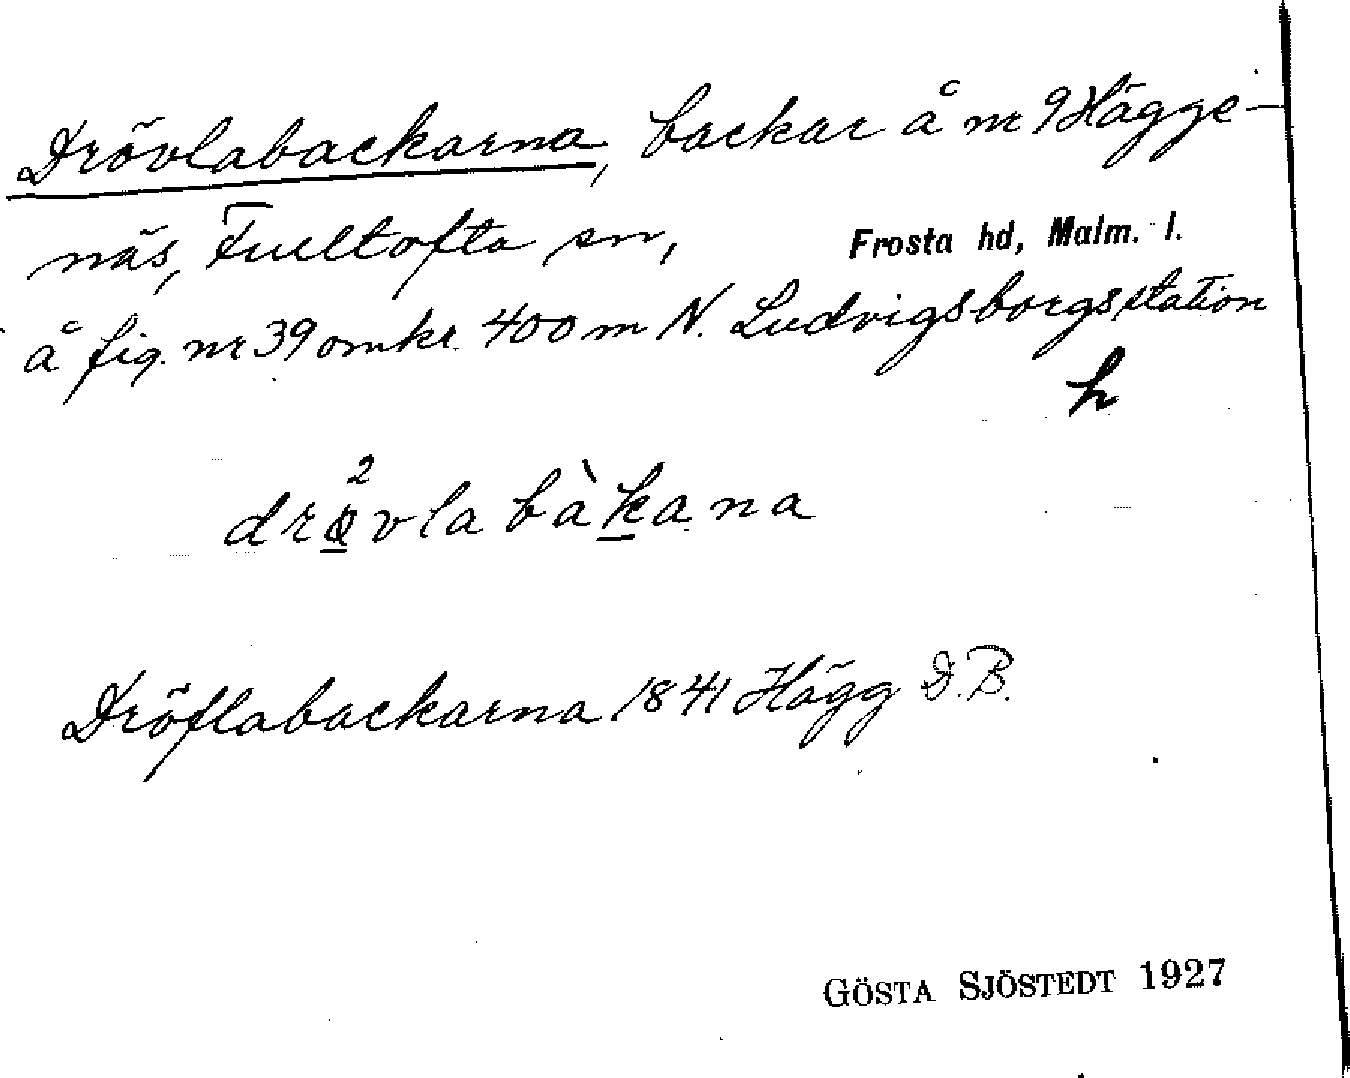 Drövlabackarna, backar å nr 9 Hägge-
näs, Fulltofta sn, Frosta hd, Malm. l.
å fig. nr 39 omkr. 400 m N. Ludvigsborgs station
h
drǫ²vla bàkana
Dröflabackarna 1841 Hägg D.B.
GÖSTA SJÖSTEDT 1927